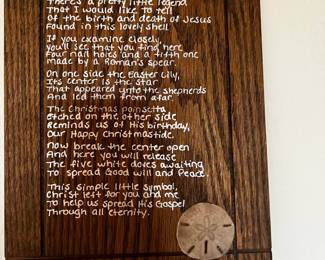 There's a pretty little legend
That I would like to tell
of the birth and death of Jesus
Found in this lovely shell
If you examine closely,
You'll see that you find here
Four nail holes and a fifth one
made by a Roman's spear.
On one side the Easter Lily,
Its center is the star
That appeared unto the shepherds
And led them from afar.
The Christmas poinsetta
Etched on the other side
Reminds us of His birthday,
Our Happy Christmastide.
Now break the center open
And here you will release
The five white doves awaiting
To spread Good will and Peace.
This simple little symbol,
Christ left for you and me
To help us spread His Gospel
Through all eternity.